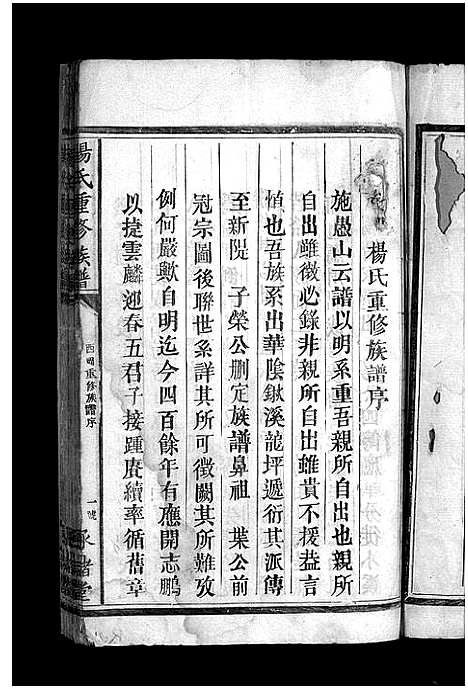 楊氏重修族譜序
施愚山云譜以明系重吾親所自出也親所
自出雖微必錄非親所自出雖貴不援葢言
慎也吾族系出華陰鍬溪龍坪遞衍其派傳
至新隄 子榮公删定族譜鼻祖 葉公前
冠宗圖後聯世系詳其所可徵闕其所難攷
例何嚴歟自明迄今四百餘年有應開志鵬
以捷雲麟迎春五君子接踵賡續率循舊章
楊氏重修族譜
重修族譜序
一號
承緒堂